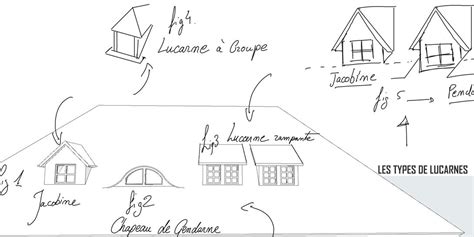 fig 4.
Lucarne à Croupe
Jacobine
Penda
fig 5
fig 3 Lucarne rampante
LES TYPES DE LUCARNES
fig 1
Jacobine
fig 2
Chapeau de Gendarme